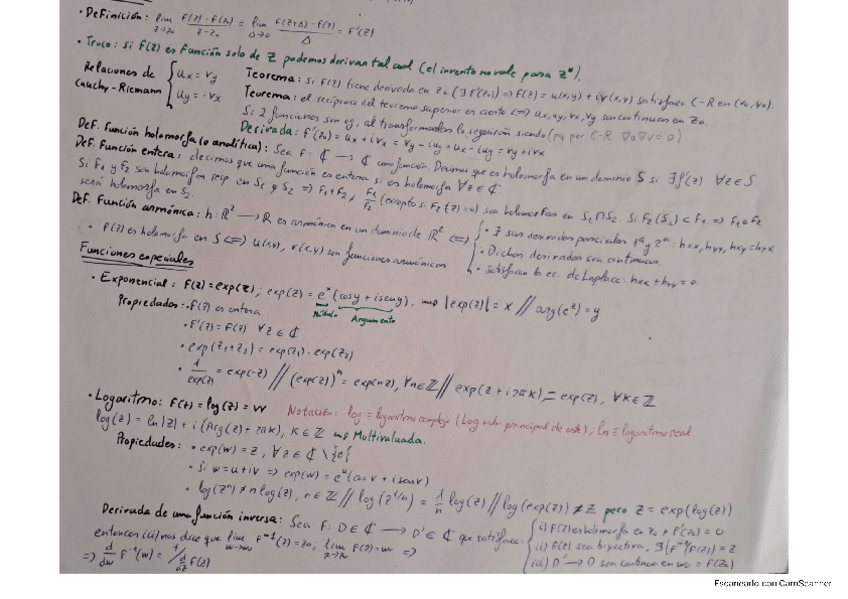 • Definición: lim z→z₀ (F(z)-F(z₀))/(z-z₀) = lim Δ→0 (F(z+Δ)-F(z))/Δ = F'(z)
• Truco: Si F(z) es función solo de z podemos derivar tal cual (el invento no vale para z*).
Relaciones de Cauchy-Riemann { Ux = Vy
Uy = -Vx
Teorema: Si F(z) tiene derivada en z₀ (∃ F'(z₀)) => F(z) = u(x,y) + iv(x,y) satisface C-R en (x₀,y₀).
Teorema: el recíproco del teorema superior es cierto <=> ux, uy, vx, vy son continuas en z₀.
Si 2 funciones son al transformarlas lo seguirán siendo (pq por C-R ∇u∇v=0)
Derivada: F'(z₀) = ux + ivx = vy - iuy = ux - iuy = vy + ivx
Def. Función holomorfa (o analítica): Sea F: ℂ → ℂ una función. Decimos que es holomorfa en un dominio S si ∃f'(z) ∀z∈S
Def. Función entera: decimos que una función es entera si es holomorfa ∀z∈ℂ
Si F₁ y F₂ son holomorfas resp. en S₁ y S₂ => F₁+F₂, F₁/F₂ (excepto si F₂(z)=0) son holomorfas en S₁∩S₂. Si F₂(S₂) ⊂ F₁ => F₁∘F₂
será holomorfa en S₂.
Def. Función armónica: h: ℝ² → ℝ es armónica en un dominio de ℝ² <=> { • ∃ sus derivadas parciales 1ª y 2ª: hxx, hyy, hxy = hyx
• Dichas derivadas son continuas.
• satisface la ec. de Laplace: hxx + hyy = 0
• F(z) es holomorfa en S <=> u(x,y), v(x,y) son funciones armónicas
Funciones especiales
• Exponencial: F(z) = exp(z); exp(z) = eˣ(cosy + iseny), |exp(z)| = x // arg(e^z) = y
Módulo Argumento
Propiedades: • F(z) es entera
• F'(z) = F(z) ∀z∈ℂ
• exp(z₁+z₂) = exp(z₁) · exp(z₂)
• 1/exp(z) = exp(-z) // (exp(z))ⁿ = exp(nz), ∀n∈ℤ // exp(z+i2πk) = exp(z), ∀k∈ℤ
• Logaritmo: F(z) = log(z) = w Notación: log = logaritmo complejo (Log valor principal de este); ln ≡ logaritmo real
log(z) = ln|z| + i(Arg(z) + 2πk), k∈ℤ Multivaluada.
Propiedades: • exp(w) = z, ∀z∈ℂ\{0}
• Si w = u+iv => exp(w) = eᵘ(cosv + isenv)
• log(zⁿ) ≠ n log(z), n∈ℤ // log(z^(1/n)) = 1/n log(z) // log(exp(z)) ≠ z pero z = exp(log(z))
Derivada de una función inversa: Sea F: D∈ℂ → D'∈ℂ que satisface: { i) F(z) es holomorfa en z₀ y F'(z₀) = 0
ii) F(z) sea biyectiva, ∃(F⁻¹(F(z)) = z
iii) D' → D sea continua en w₀ = F(z₀)
entonces iii) nos dice que lim w→w₀ F⁻¹(z) = z₀; lim z→z₀ F(z) = w₀ =>
=> d/dw F⁻¹(w) = 1/ d/dz F(z)
Escaneado con CamScanner